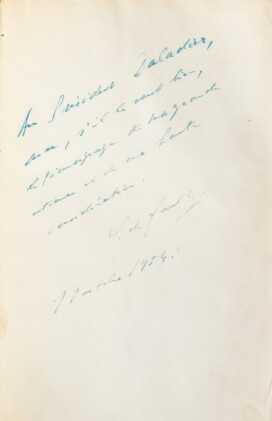 Au Président Daladier,
avec, s'il le veut bien,
le témoignage de ma grande
estime et de ma haute
considération.
C. de Gaulle
7 octobre 1954.